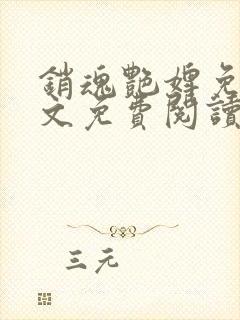 銷魂艷婢免
文免費閱讀
三元